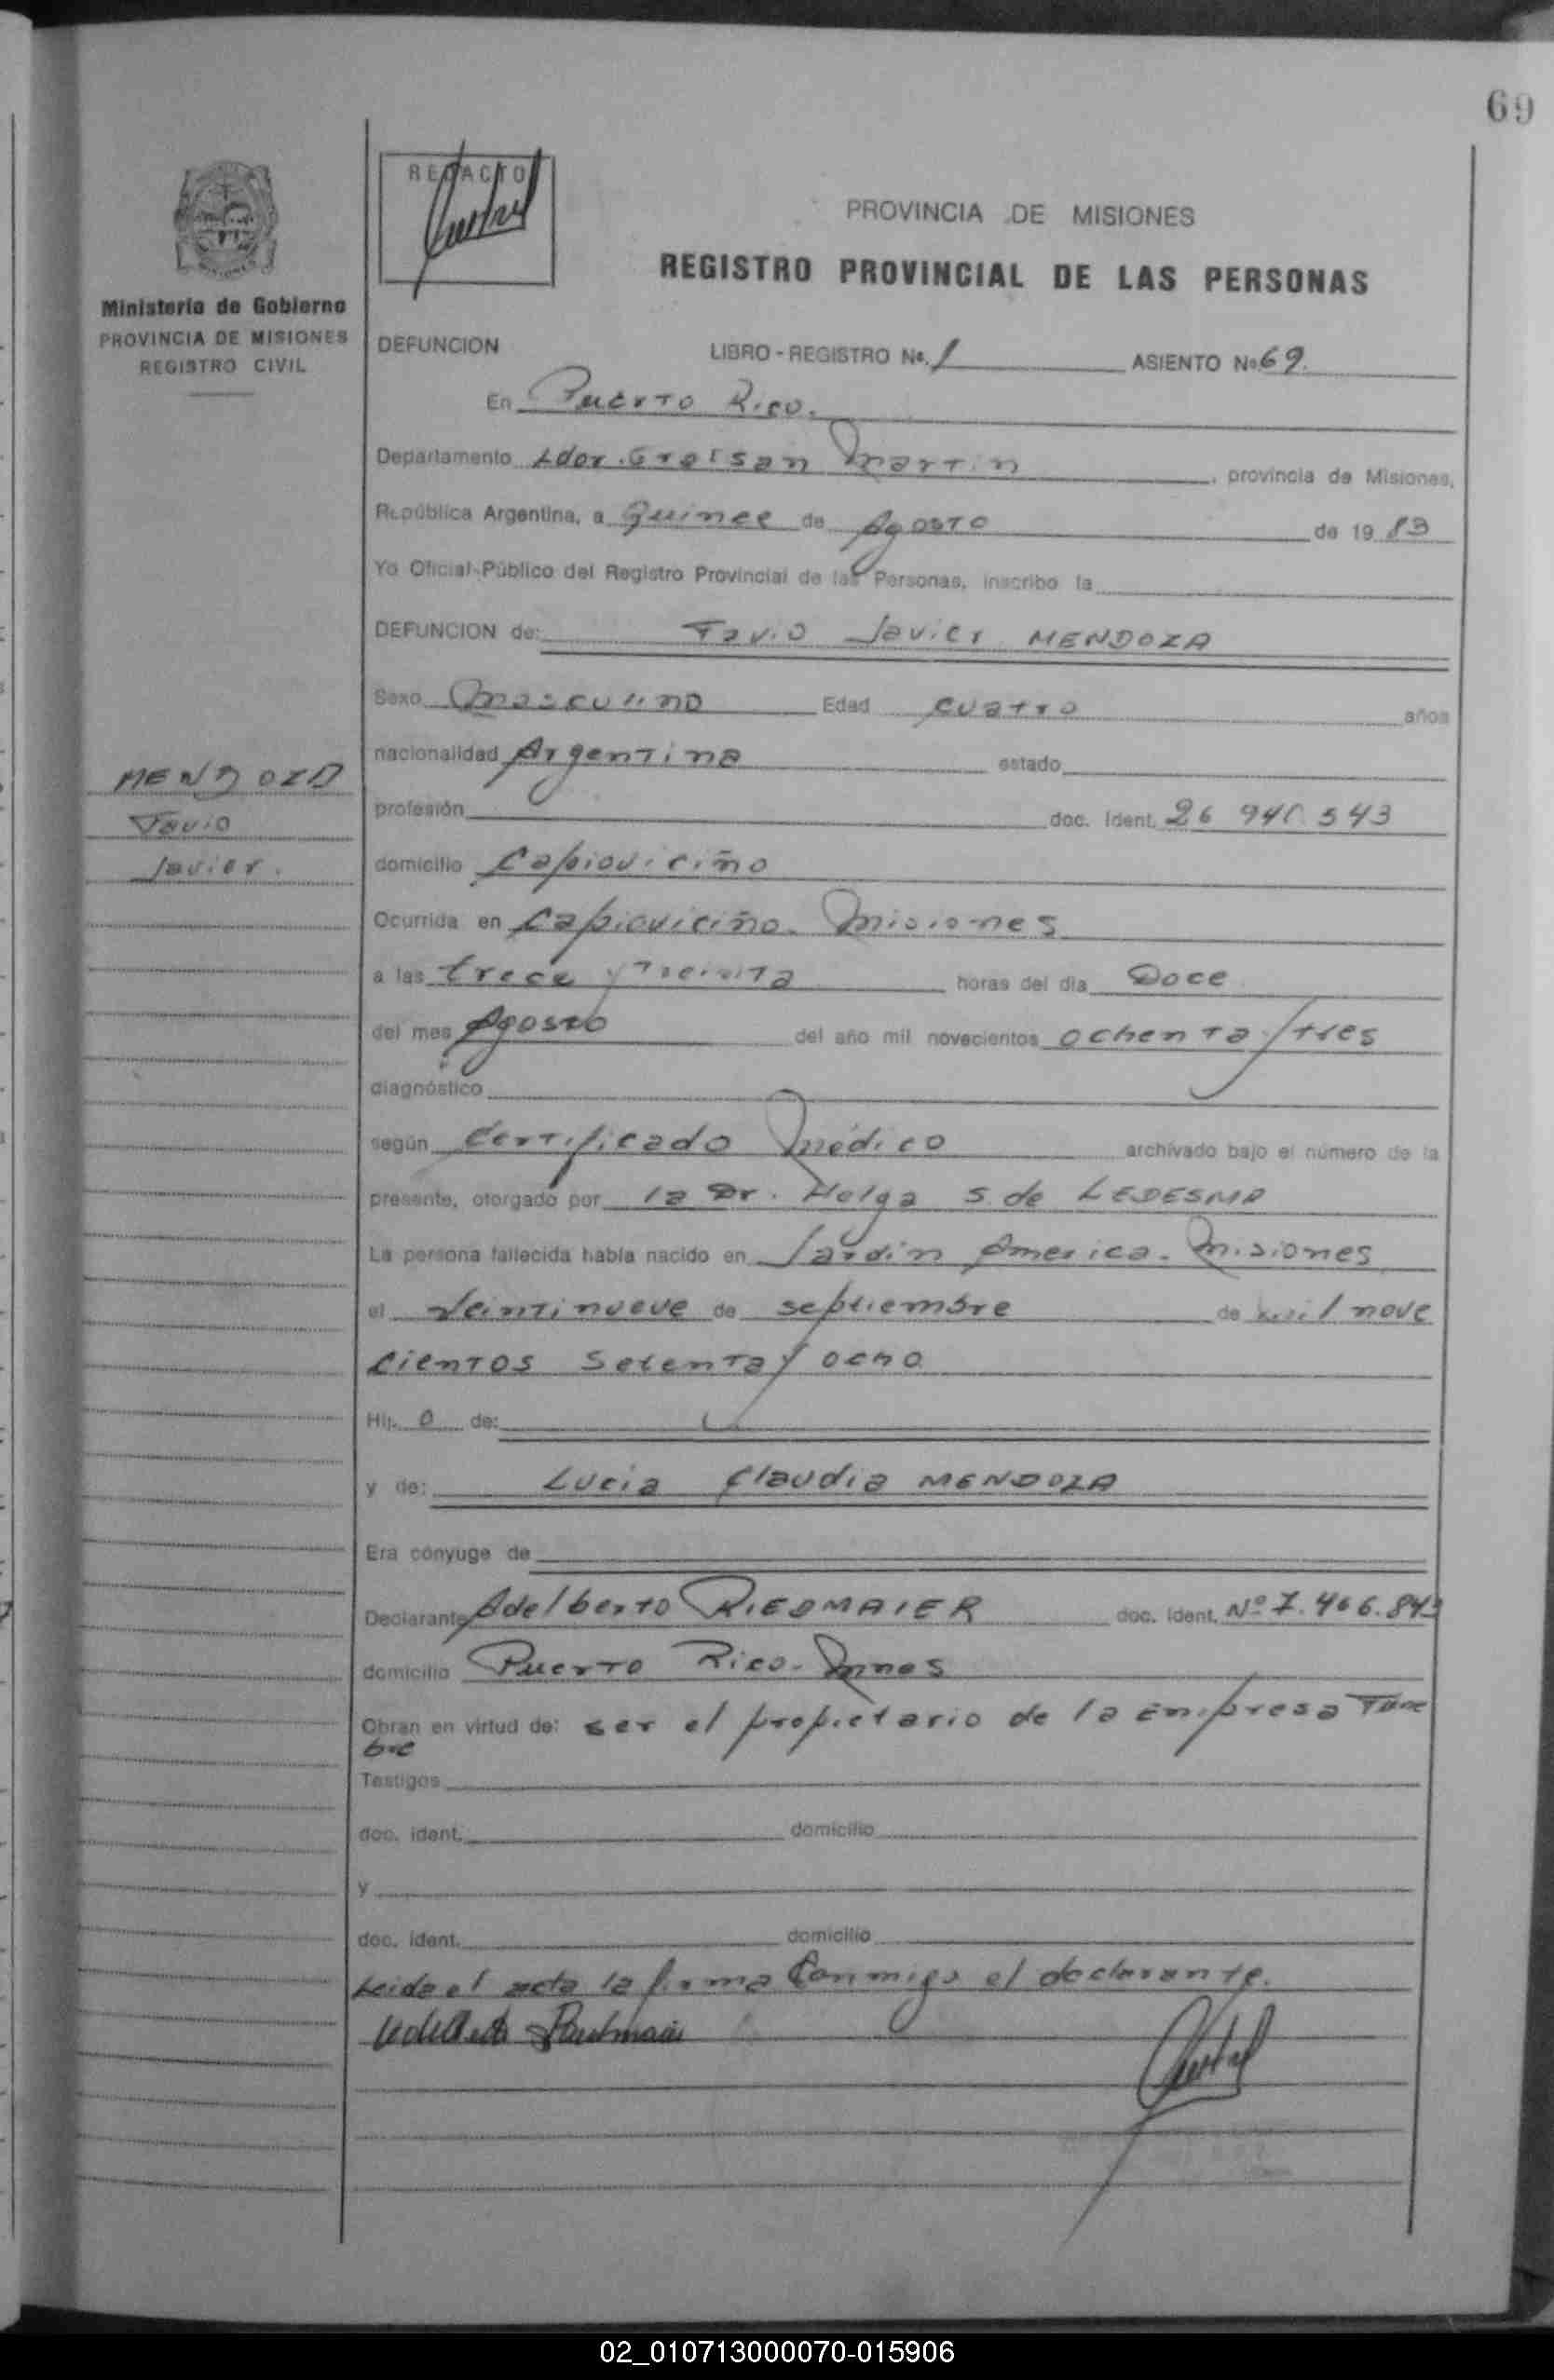 69
REDACTO
PROVINCIA DE MISIONES
REGISTRO PROVINCIAL DE LAS PERSONAS
MISIONES
Ministerio de Gobierno
PROVINCIA DE MISIONES
REGISTRO CIVIL
DEFUNCION LIBRO - REGISTRO No. 1 ASIENTO No 69.
En Puerto Rico.
Departamento Ldor. Gral San Martin, provincia de Misiones,
República Argentina, a Quince de Agosto de 19 83
Yo Oficial Público del Registro Provincial de las Personas, inscribo la
DEFUNCION de: Favio Javier MENDOZA
Sexo Masculino Edad cuatro años
nacionalidad Argentina estado
MENDOZA
Favio
Javier.
profesión doc. Ident. 26 940 543
domicilio Capioviciño
Ocurrida en Capioviciño. Misiones
a las trece y treinta horas del día Doce
del mes Agosto del año mil novecientos ochenta y tres
diagnóstico
según Certificado Médico archivado bajo el número de la
presente, otorgado por la Dr. Helga S. de LEDESMA
La persona fallecida había nacido en Jardín America. Misiones
el Veintinueve de septiembre de mil nove
cientos setenta y ocho
Hij o de:
y de: Lucia Claudia MENDOZA
Era cónyuge de
Declarante Adelberto RIEDMAIER doc. ident. Nº 7.466.843
domicilio Puerto Rico. Mnes
Obran en virtud de: ser el propietario de la Empresa Fune
bre
Testigos
doc. ident. domicilio
y
doc. ident. domicilio
Leida el acta la firma Conmigo el declarante.
02_010713000070-015906